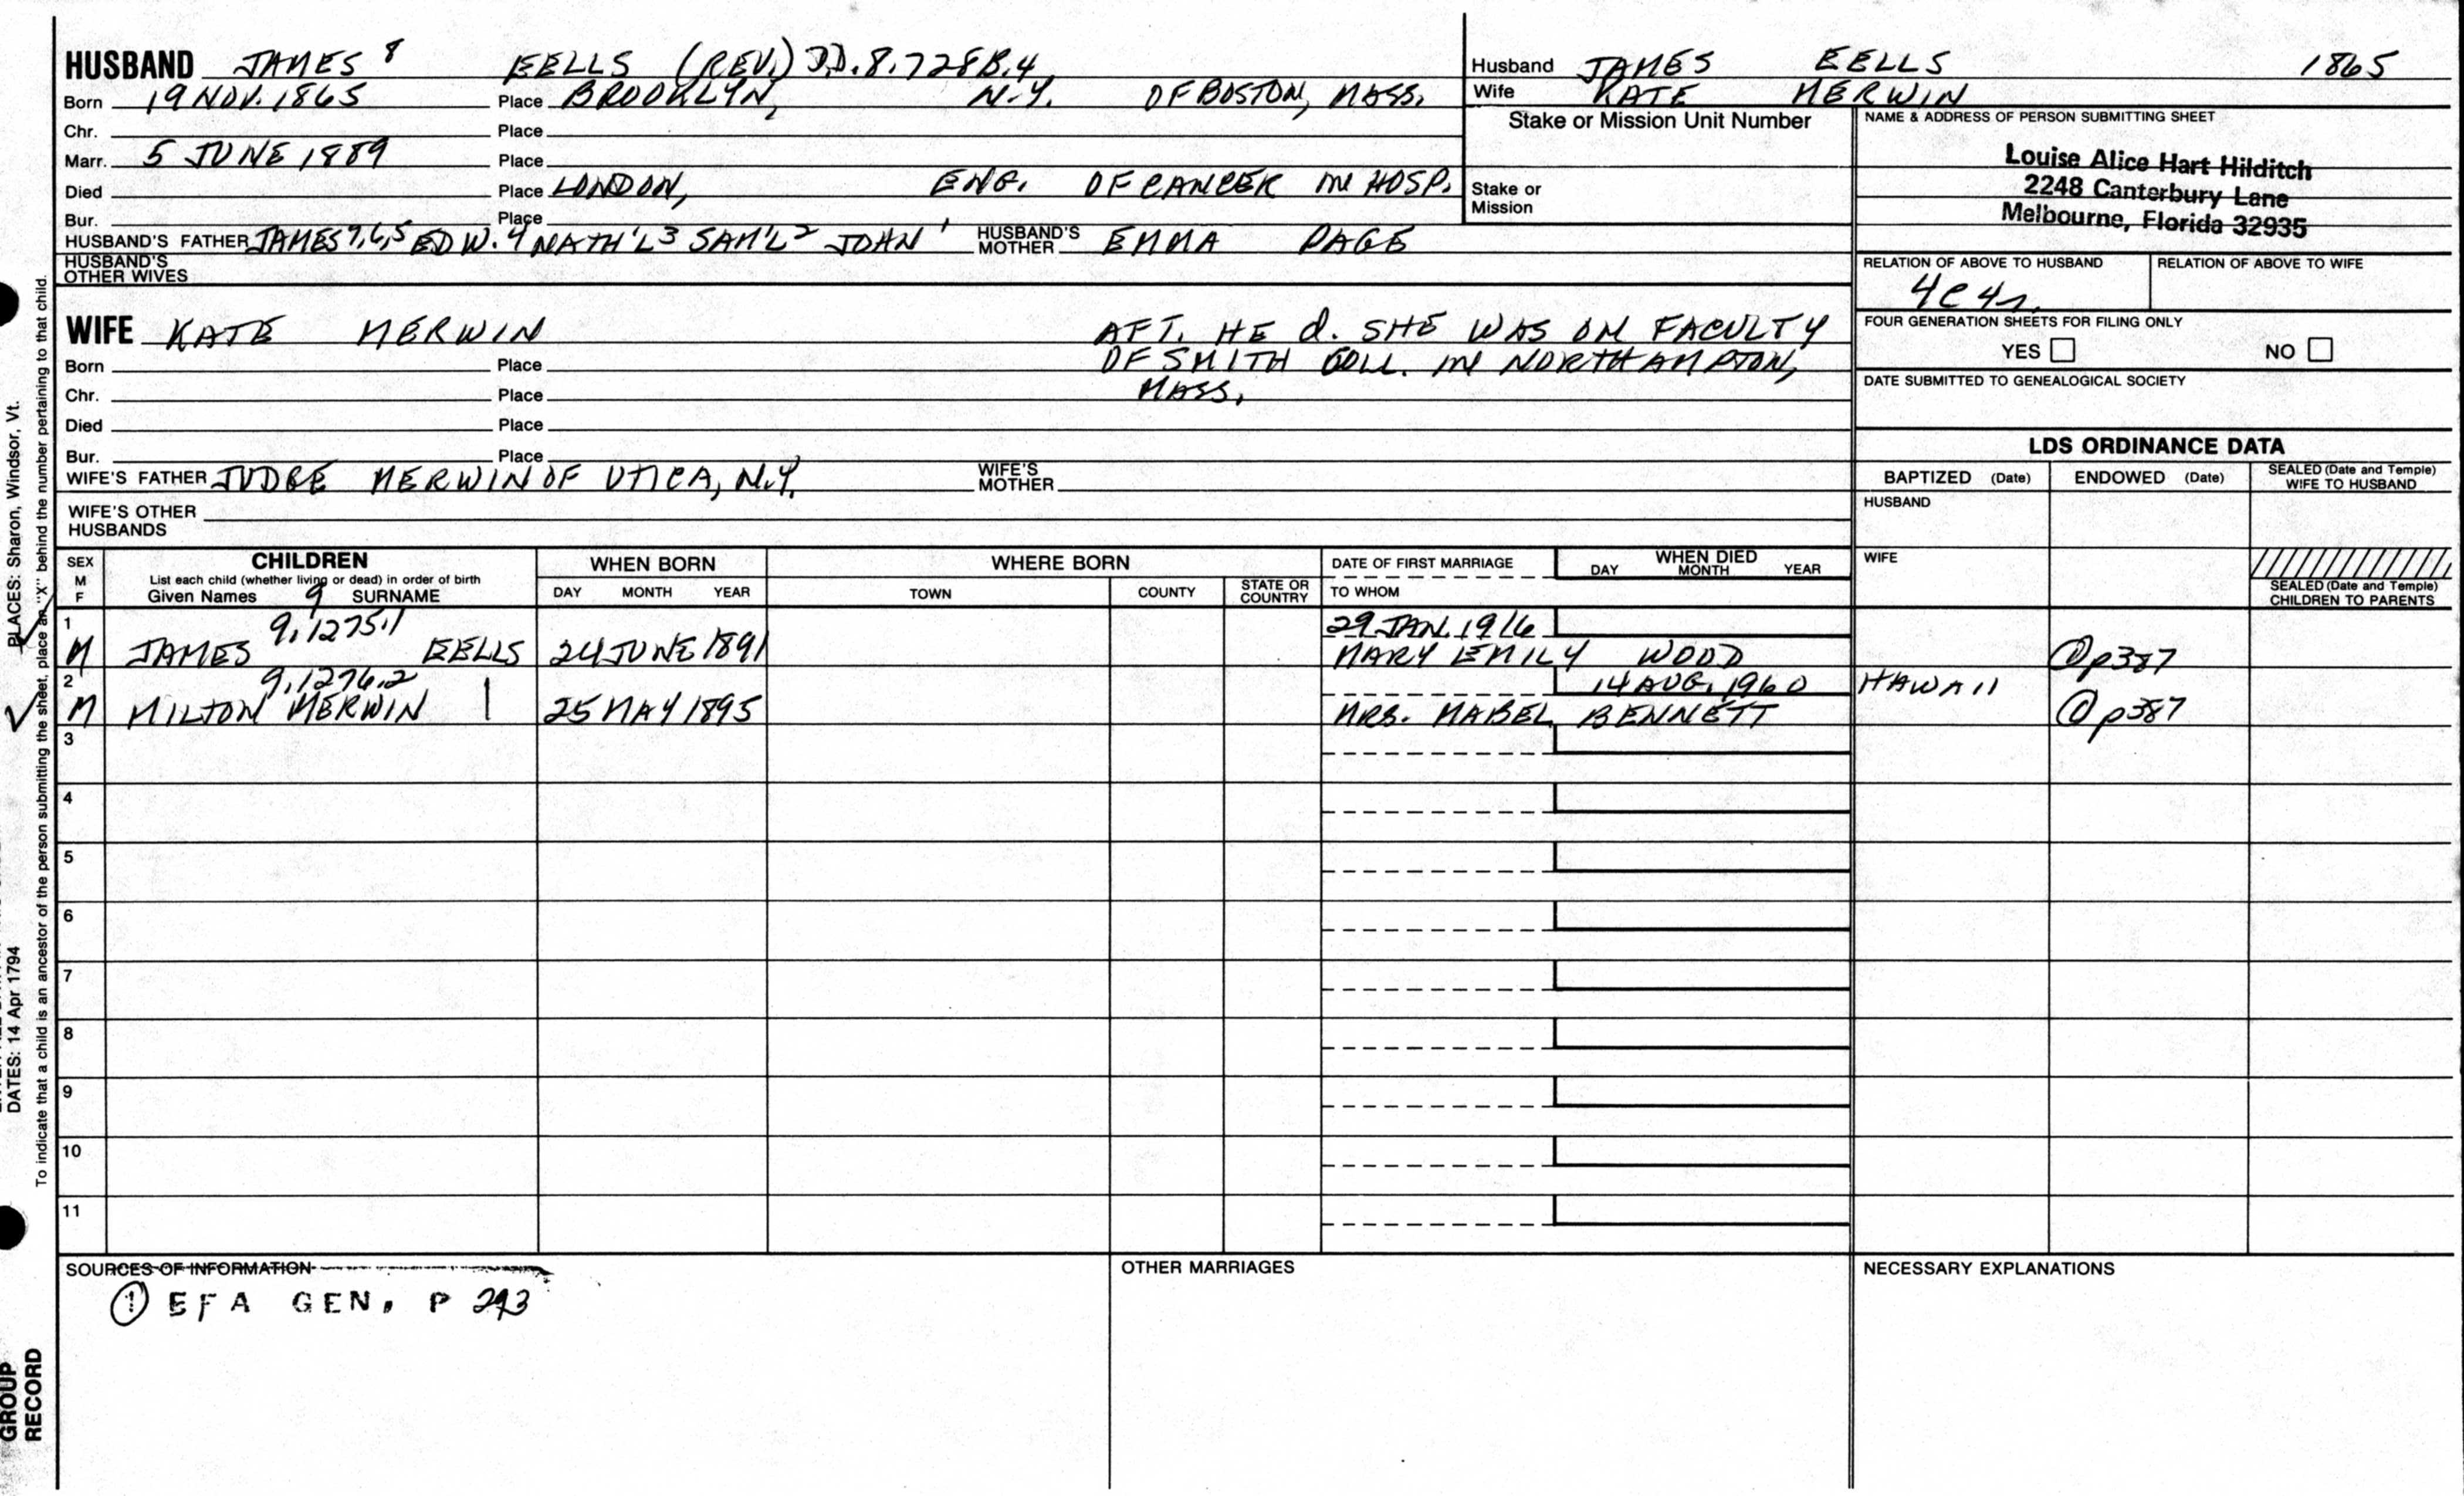 HUSBAND JAMES 8 EELLS (REV.) D.D. 8.728B.4
Born 19 NOV. 1865 Place BROOKLYN, N.Y. OF BOSTON, MASS.
Chr. Place
Marr. 5 JUNE 1889 Place
Died Place LONDON, ENG. OF CANCER IN HOSP.
Bur. Place
HUSBAND'S FATHER JAMES 7,6,5 EDW. 4 NATH'L 3 SAM'L 2 JOHN 1 HUSBAND'S MOTHER EMMA PAGE
HUSBAND'S OTHER WIVES
Husband JAMES EELLS 1865
Wife KATE MERWIN
Stake or Mission Unit Number
Stake or Mission
NAME & ADDRESS OF PERSON SUBMITTING SHEET
Louise Alice Hart Hilditch
2248 Canterbury Lane
Melbourne, Florida 32935
RELATION OF ABOVE TO HUSBAND RELATION OF ABOVE TO WIFE
4c4r.
FOUR GENERATION SHEETS FOR FILING ONLY
YES NO
DATE SUBMITTED TO GENEALOGICAL SOCIETY
WIFE KATE MERWIN AFT. HE d. SHE WAS ON FACULTY
Born Place OF SMITH COLL. IN NORTHAMPTON,
Chr. Place MASS.
Died Place
Bur. Place
WIFE'S FATHER JUDGE MERWIN OF UTICA, N.Y. WIFE'S MOTHER
WIFE'S OTHER HUSBANDS
LDS ORDINANCE DATA
BAPTIZED (Date) ENDOWED (Date) SEALED (Date and Temple) WIFE TO HUSBAND
HUSBAND
WIFE
SEALED (Date and Temple) CHILDREN TO PARENTS
SEX M F
CHILDREN
List each child (whether living or dead) in order of birth
Given Names 9 SURNAME
WHEN BORN
DAY MONTH YEAR
WHERE BORN
TOWN COUNTY STATE OR COUNTRY
DATE OF FIRST MARRIAGE
TO WHOM
WHEN DIED
DAY MONTH YEAR
1 9.1275.1 29 JAN. 1916
M JAMES EELLS 24 JUNE 1891 MARY EMILY WOOD @p387
2 9.1276.2 14 AUG. 1960 HAWAII
M MILTON MERWIN | 25 MAY 1895 MRS. MABEL BENNETT @p387
3
4
5
6
7
8
9
10
11
SOURCES OF INFORMATION
① EFA GEN. P 293
OTHER MARRIAGES
NECESSARY EXPLANATIONS
PLACES: Sharon, Windsor, Vt.
DATES: 14 Apr 1794
To indicate that a child is an ancestor of the person submitting the sheet, place an "X" behind the number pertaining to that child.
GROUP
RECORD